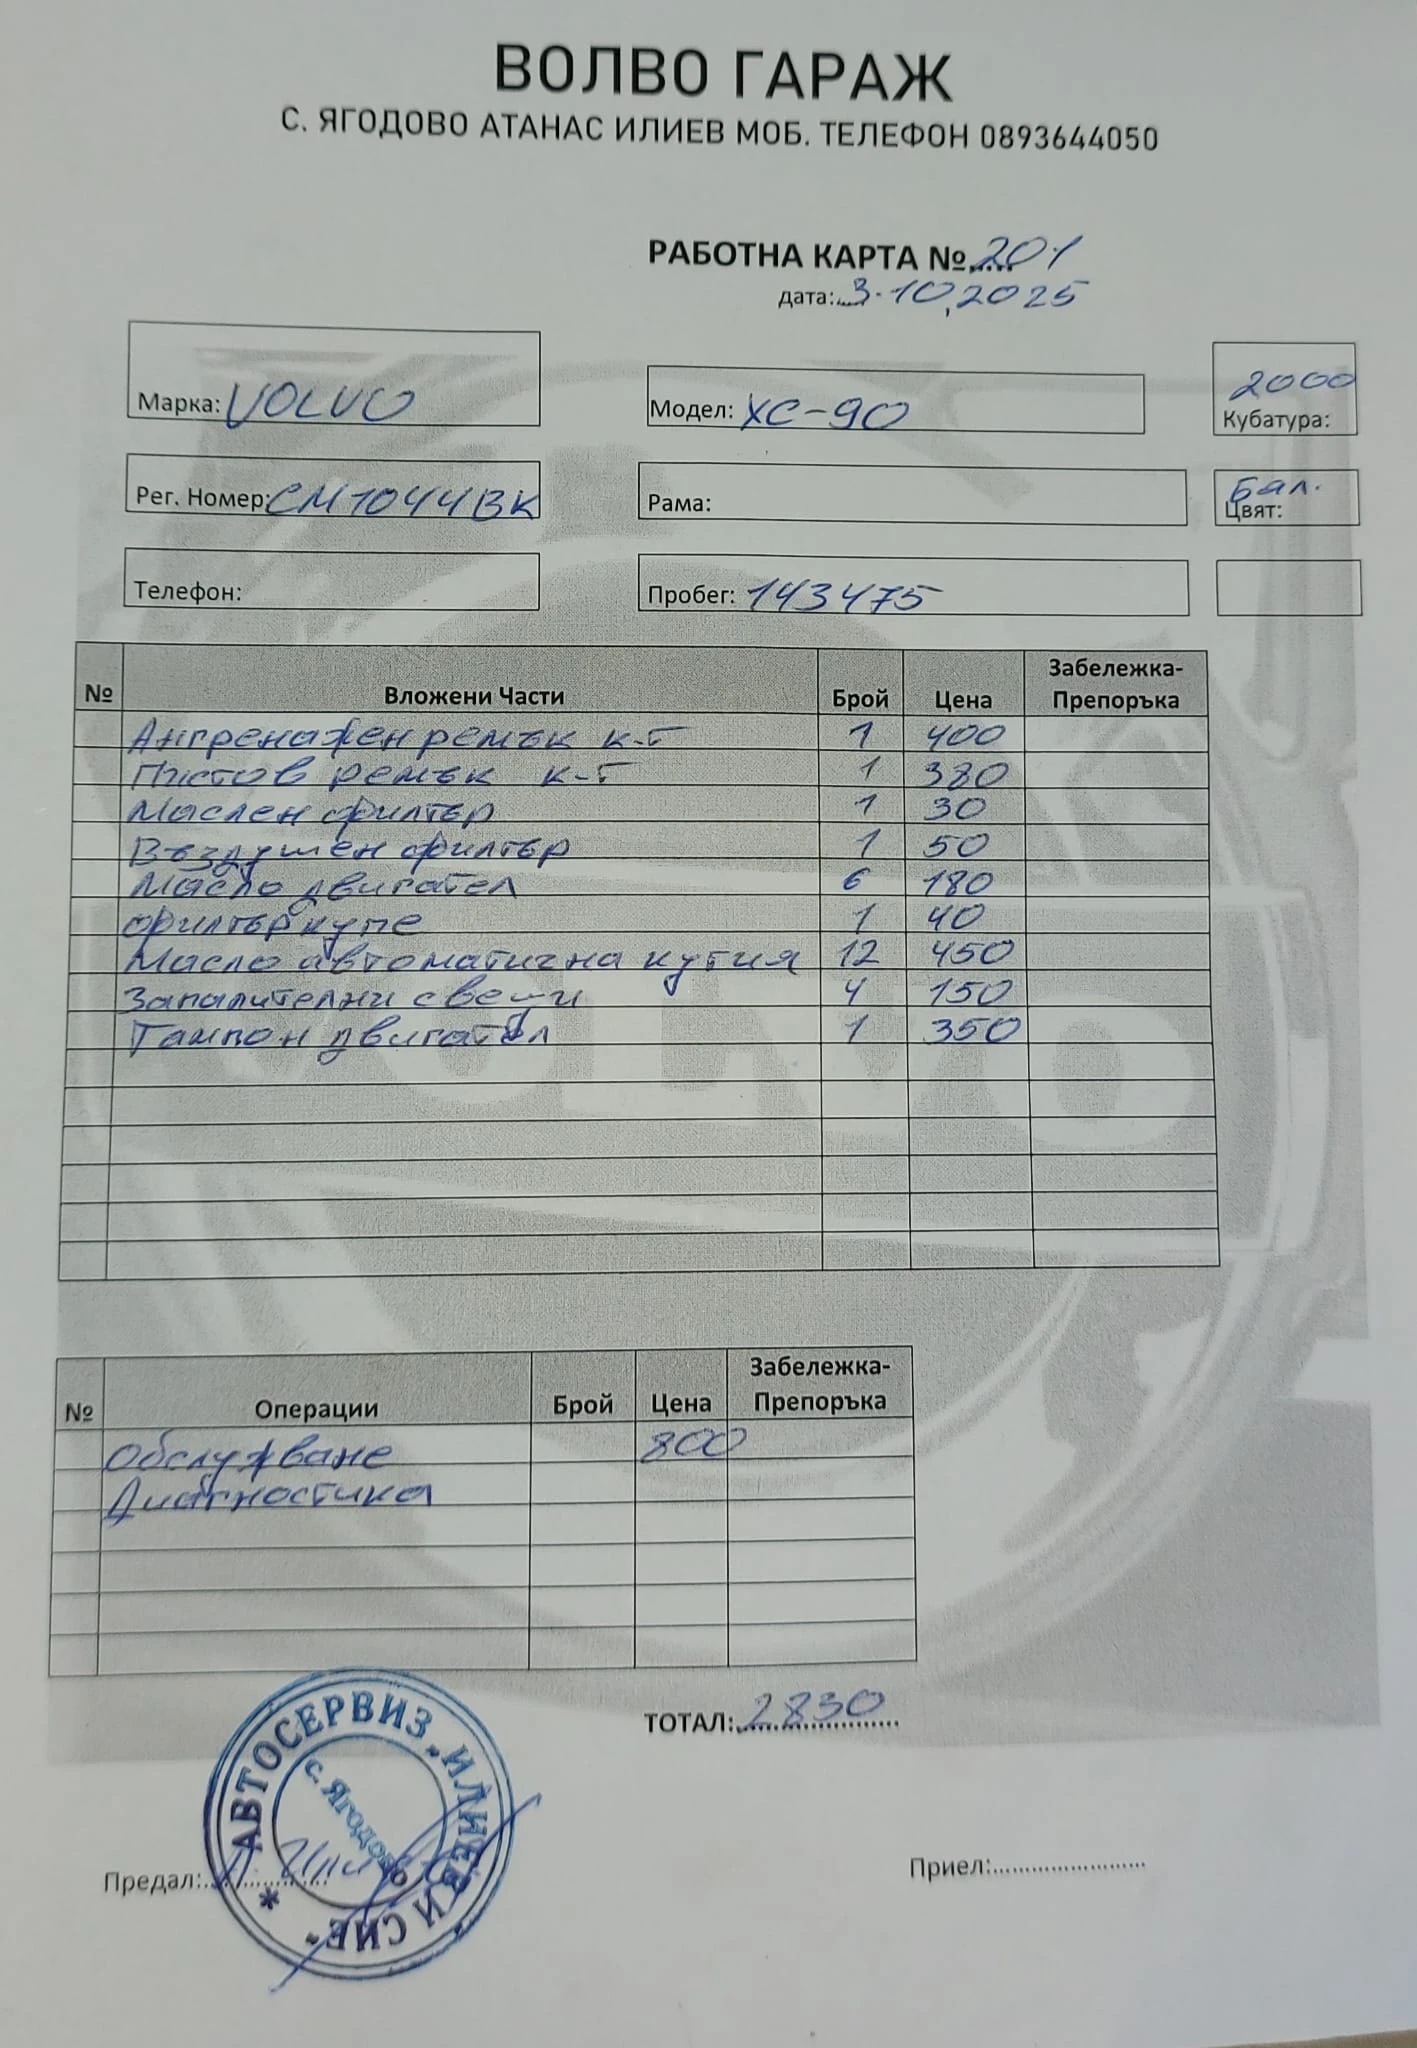 ВОЛВО ГАРАЖ
С. ЯГОДОВО АТАНАС ИЛИЕВ МОБ. ТЕЛЕФОН 0893644050
РАБОТНА КАРТА №.....201
дата:....3.10,2025
Марка: VOLVO
Модел: XC-90
2000
Кубатура:
Рег. Номер: СМ1044ВК
Рама:
Бял.
Цвят:
Телефон:
Пробег: 143475
№ Вложени Части Брой Цена Забележка-Препоръка
Ангренажен ремък к-т 1 400
Пистов ремък к-т 1 380
Маслен филтър 1 30
Въздушен филтър 1 50
Масло двигател 6 180
Филтър купе 1 40
Масло автоматична кутия 12 450
Запалителни свещи 4 150
Тампон двигател 1 350
№ Операции Брой Цена Забележка-Препоръка
Обслужване 800
Диагностика
ТОТАЛ: 2830
АВТОСЕРВИЗ „ИЛИЕВ И СИЕ“
с. Ягодово
Предал:
Приел:........................